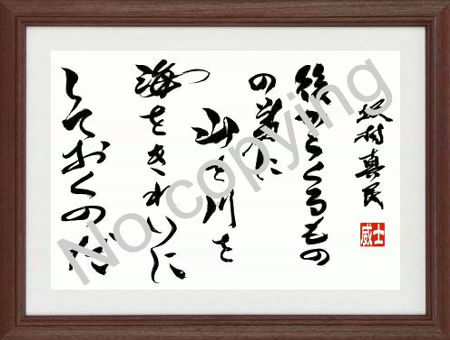 坂村真民
士威
後からくるもの
の為に
山を川を
海をきれいに
しておくのだ
No copying